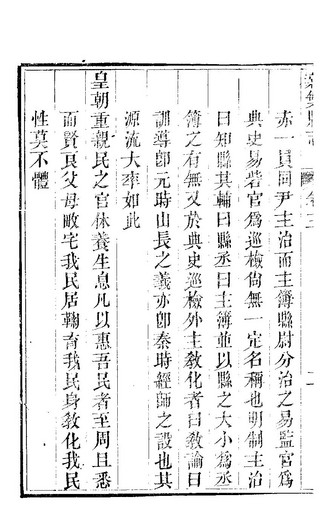 亦一員因尹主治而主簿縣尉分治之易監官爲
典史易砦官爲巡檢尚無一定名稱也明制主治
曰知縣其輔曰縣丞曰主簿並以縣之大小爲丞
簿之有無又於典史巡檢外主敎化者曰敎諭曰
訓導卽元時山長之義亦卽秦時經師之設也其
源流大率如此
皇朝重親民之官休養生息凡以惠吾民者至周且悉
而賢良父母畝宅我民居鞠育我民身敎化我民
性莫不體